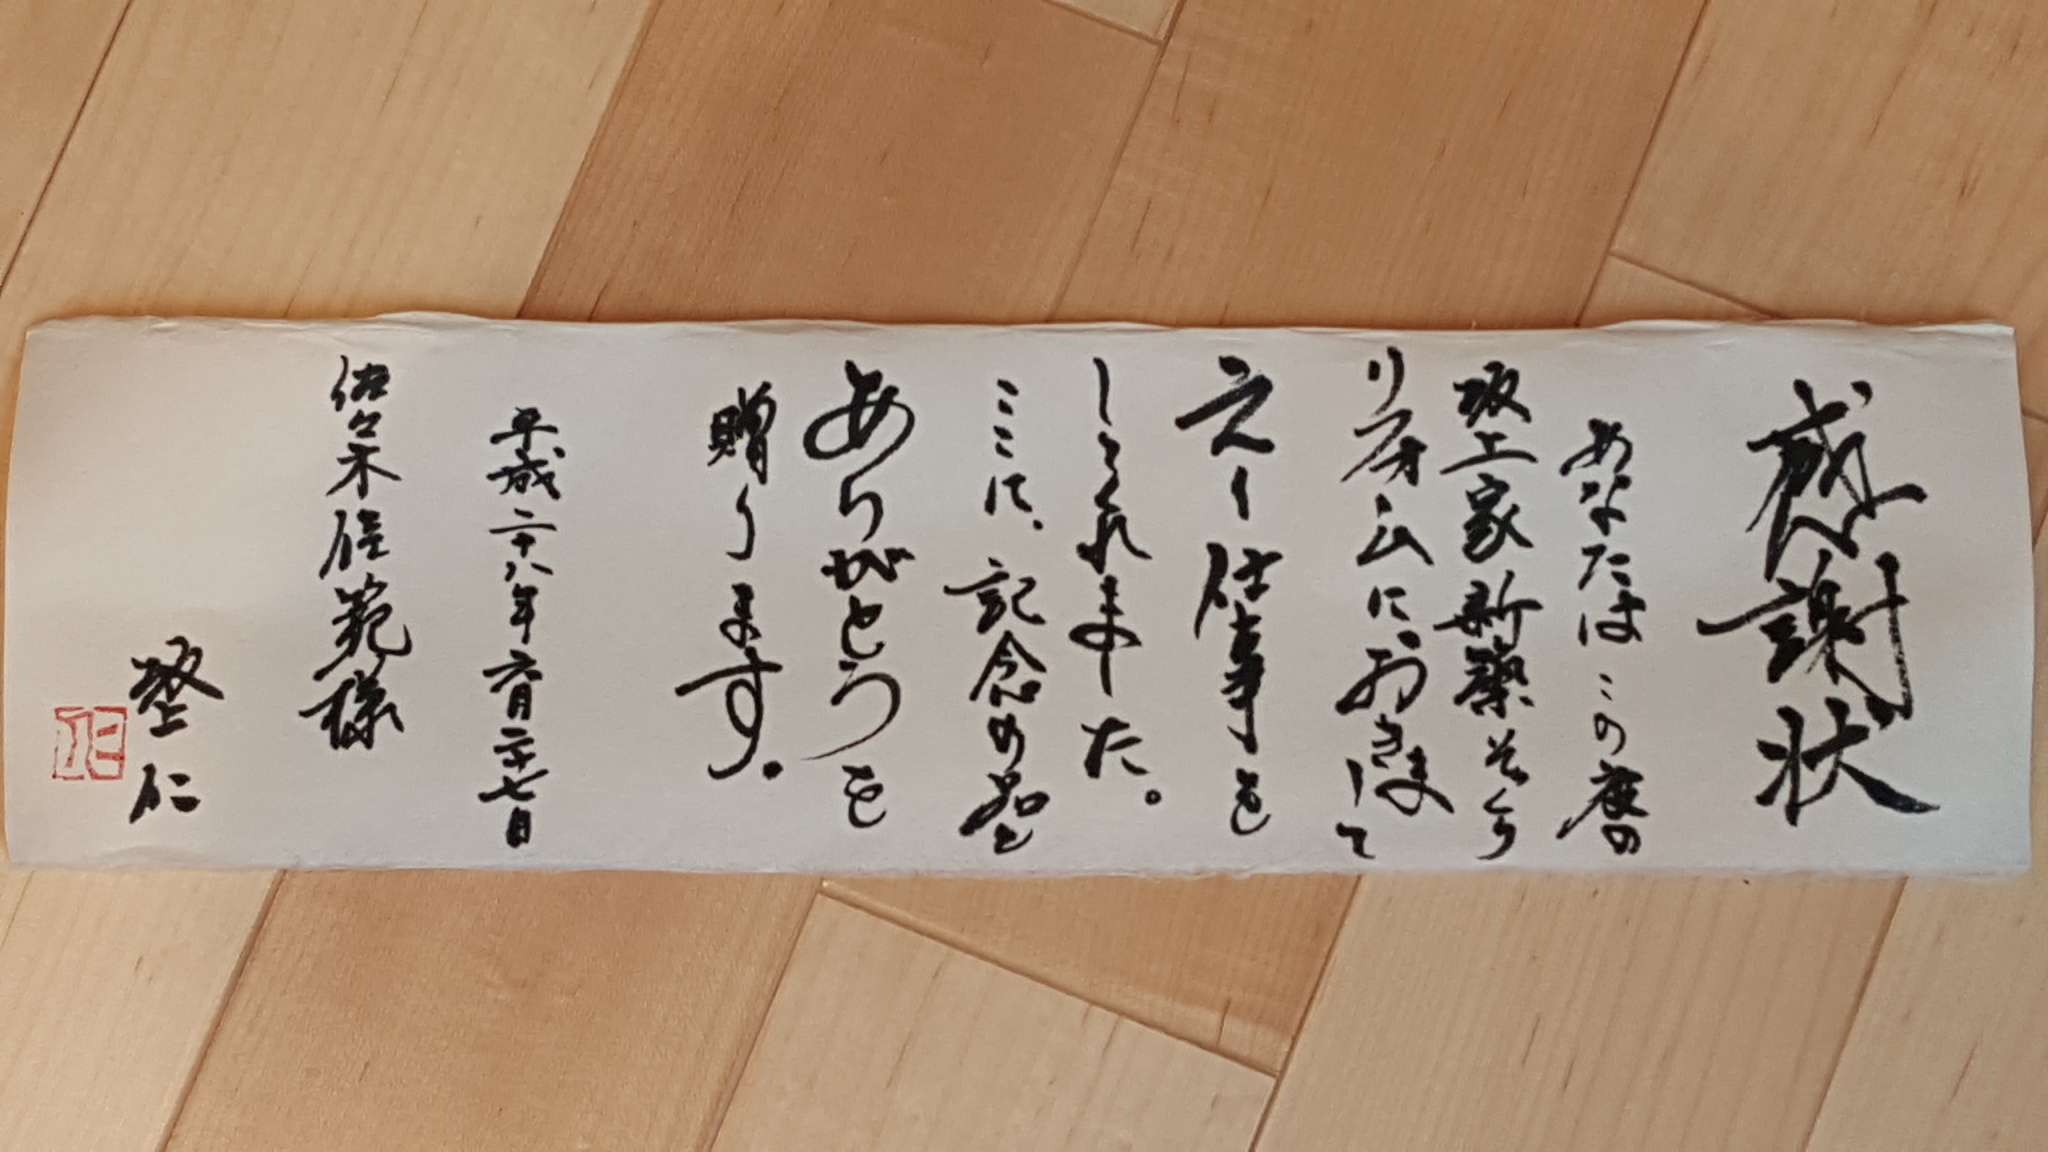 感謝状
あなたは この度の
坂上家 新築そっくり
リフォームにおきまして
えー仕事を
してくれました。
ここに、記念の品と
ありがとうを
贈ります。
平成二十八年六月二十七日
佐々木 信範様
坂上 仁
仁